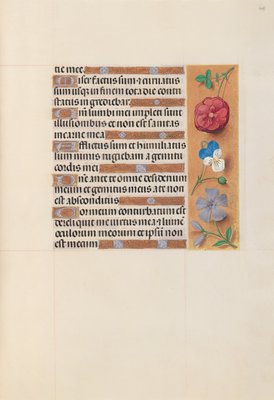 tie mee.
Miser factus sum et curuatus
sum usqz in finem tota die contri
status ingrediebar.
Qm lumbi mei impleti sunt
illusionibus et non est sanitas
in carne mea.
Afflictus sum et humiliatus
sum nimis rugiebam a gemitu
cordis mei.
Dne ante te omne desiderium
meum et gemitus meus a te non
est absconditus.
Cor meum conturbatum est
dereliquit me uirtus mea et lumē
oculorum meorum et ipsū non
est mecum.